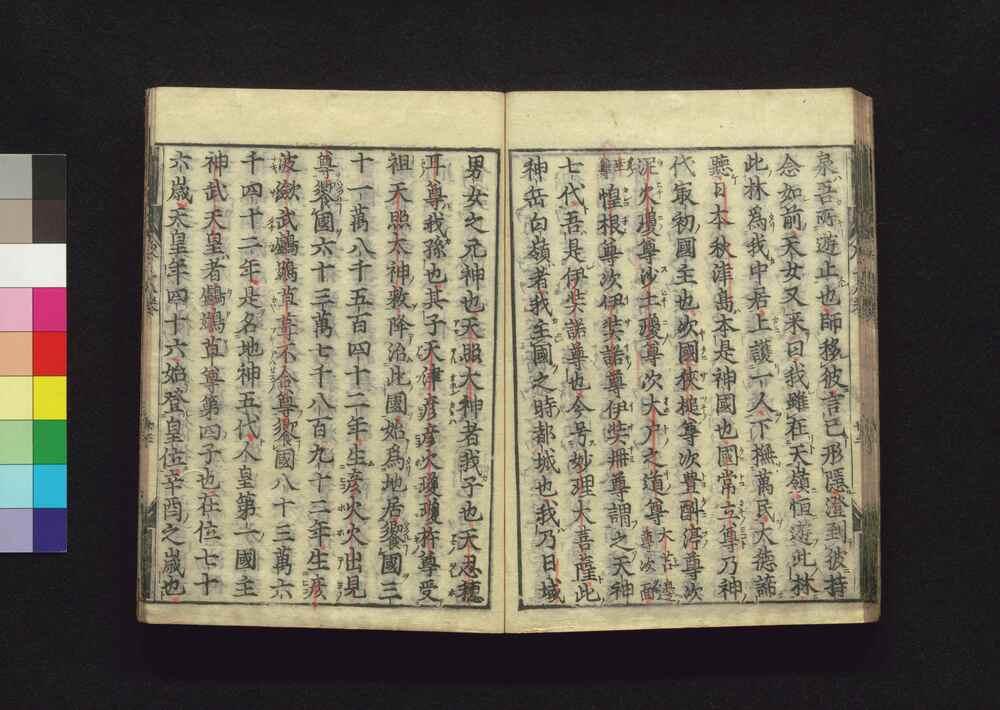 泉吾所遊止也師移彼言已形隱澄到彼持
念如前天女又来曰我雖在天嶺恒遊此林
此林為我中居上護一人下撫萬民大德諦
聽日本秋津島本是神國也國常立尊乃神
代最初國主也次國狹槌尊次豊斟渟尊次
泥土瓊尊沙土瓊尊次大戸之道尊大苫邊尊次面
尊惶根尊次伊弉諾尊伊弉冊尊謂之天神
七代吾是伊弉諾尊也今号妙理大菩薩此
神岳白嶺者我主國之時都城也我乃日域
男女之元神也天照大神者我子也天忍穗
耳尊我孫也其子天津彦彦火瓊瓊杵尊受
祖天照太神敕降治此國始為地居饗國三
十一萬八千五百四十二年生彦火火出見
尊饗國六十三萬七千八百九十二年生彦
波瀲武鸕鷀草葺不合尊饗國八十三萬六
千四十二年是名地神五代人皇第一國主
神武天皇者鸕鷀草尊第四子也在位七十
六歳天皇年四十六始登皇位辛酉之歳也